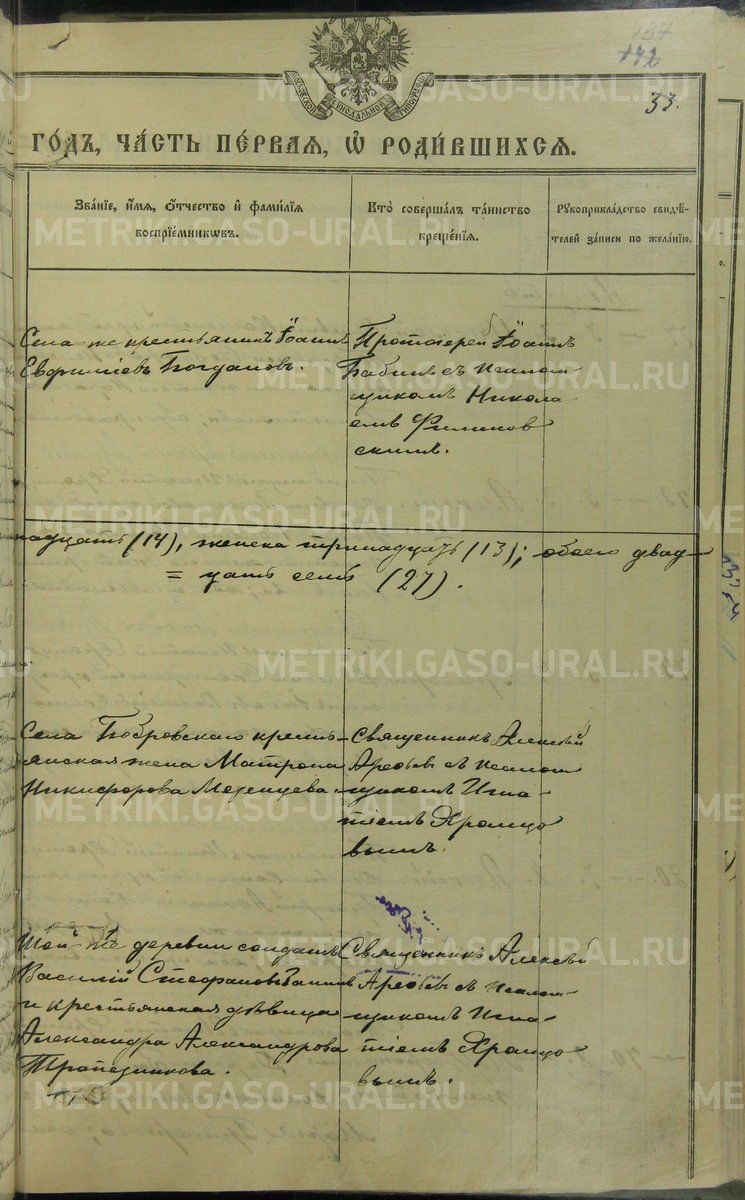 142
33.
ГО́ДЪ, ЧА́СТЬ ПЕ́РВАЯ, Ѡ РОДИ́ВШИХСѦ.
Зва́нїе, и́мя, о́тчество и фами́лїя
воспрїе́мникѡвъ.
Кто̀ соверша́лъ та́инство
креще́нїя.
Рꙋкоприкла́дство свидѣ́-
телей за́писи по жела́нїю.
Села же крестьянинъ Іоаннъ
Евфиміевъ Богдановъ.
Протоіерей Іоаннъ
Бабинъ съ псалом-
щикомъ Никола-
емъ
скимъ.
надцать (14), женска тринадцать (13); обоего двад-
= цать семь (27).
Села Бобровскаго кресть-
янская жена Матрона
Никифорова Мезенцева
Священникъ Алексѣй
Арефьевъ съ псалом-
щикомъ Игна-
тіемъ Хромцо
вымъ.
Той-же деревни солдатъ
Василій Стефановъ
и крестьянская дѣвица
Александра Александрова
Трапезникова.
Священникъ Алексѣй
Арефьевъ съ псалом-
щикомъ Игна-
тіемъ Хромцо
вымъ.
METRIKI.GASO-URAL.RU